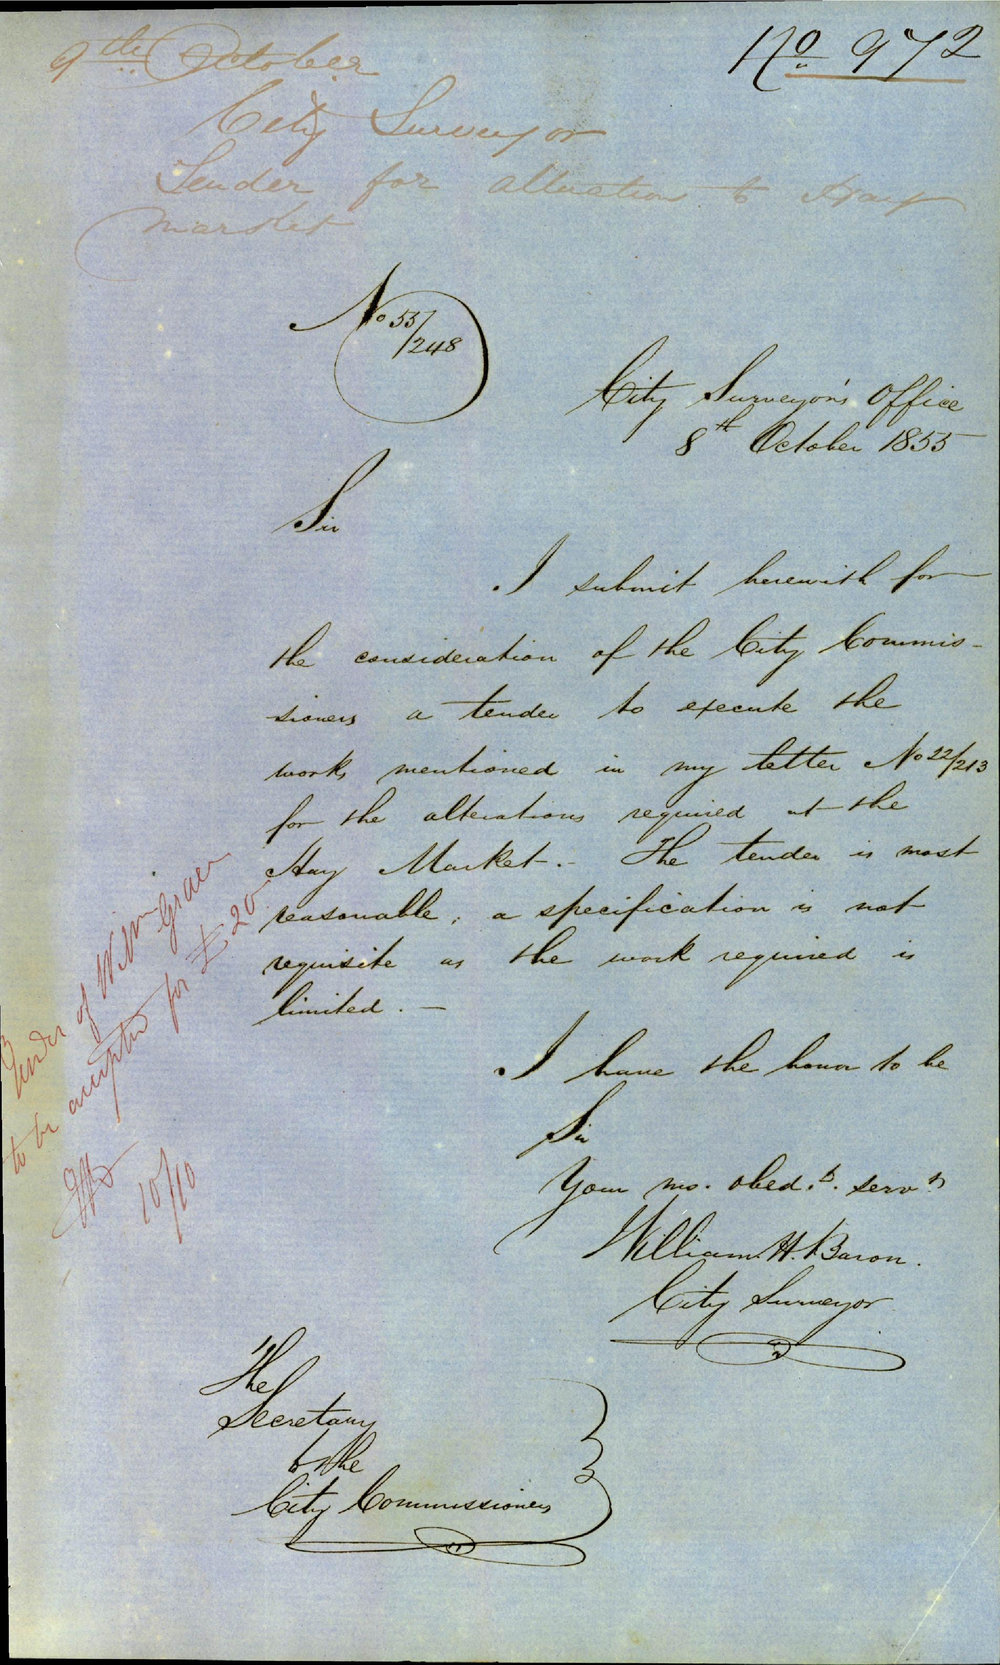 No 972
9th October
City Surveyor
Tender for alteration to Hay
Market
No 55/248
City Surveyor's Office
8th October 1855
Sir
I submit herewith for
the consideration of the City Commis-
sioners a tender to execute the
works mentioned in my letter No 22/213
for the alterations required at the
Hay Market. - The tender is most
reasonable; a specification is not
requisite as the work required is
limited. -
I have the honor to be
Sir
Your mo. obed.t. servt
William. H. Baron.
City Surveyor
The
Secretary
to the
City Commissioners
Tender of Wm
to be accepted for £20
10/10